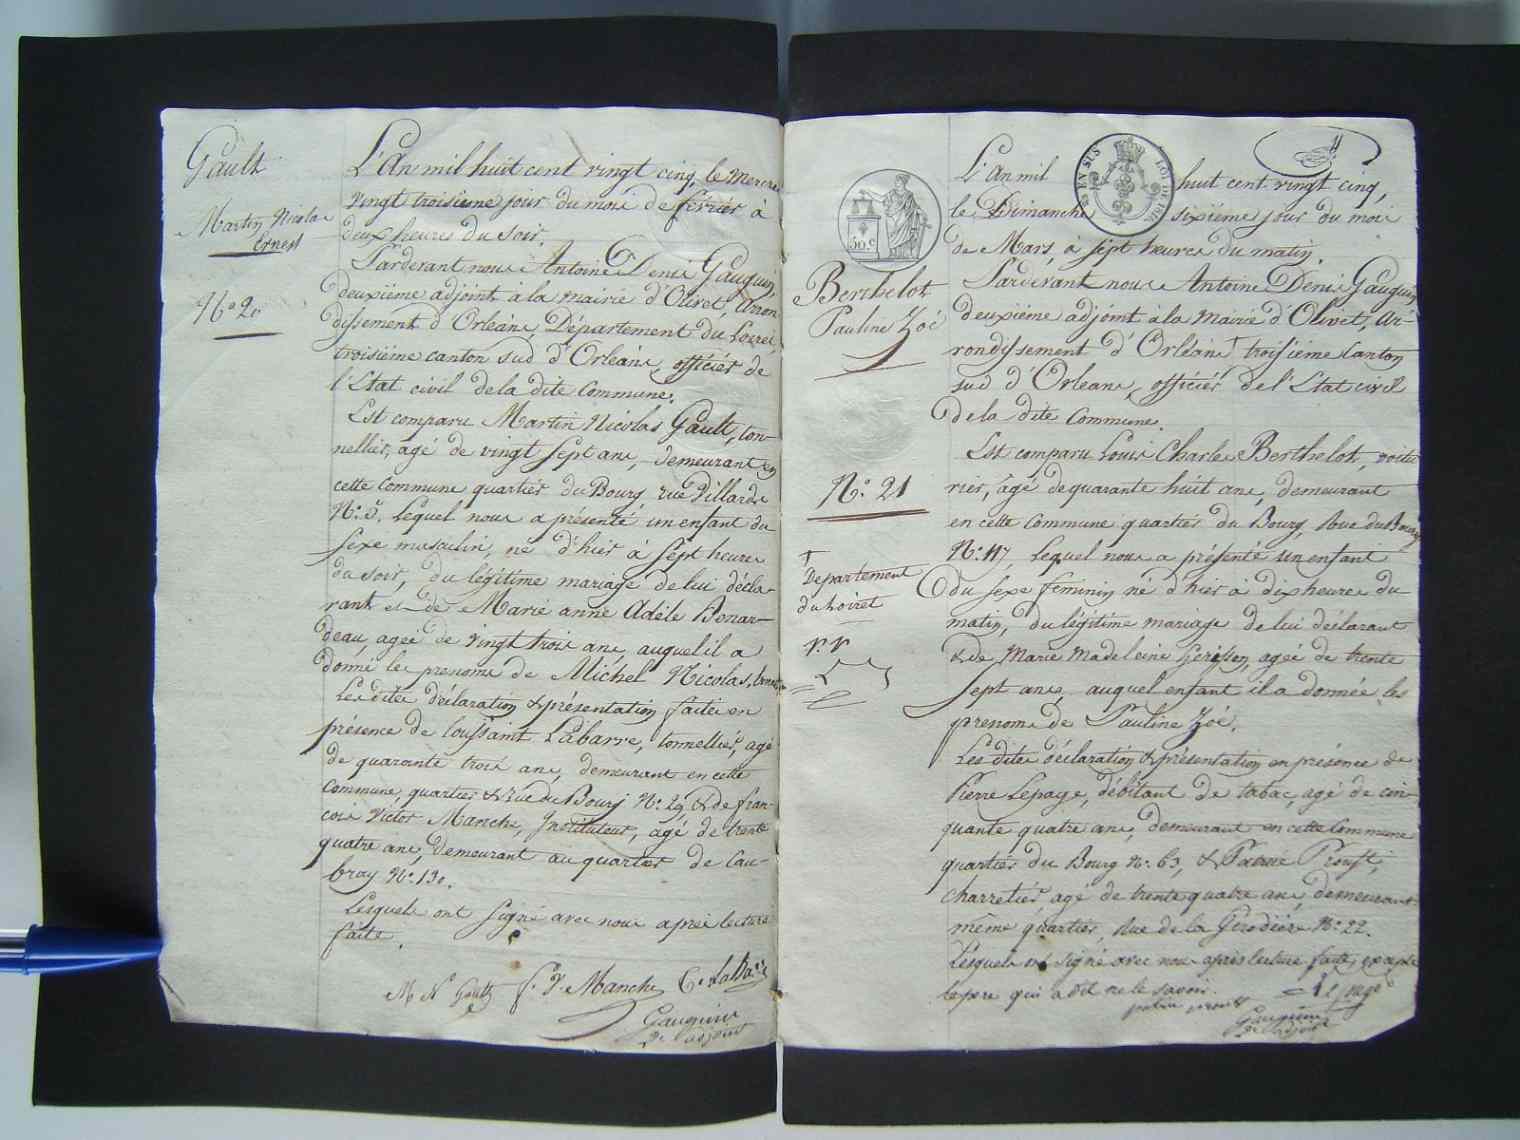 Gault
Martin Nicolas
Ernest
N.o 20
L'An mil huit cent vingt cinq, le Mercre
vingt troisieme jour du mois de fevrier à
deux heures du soir.
Pardevant nous Antoine Denis Gauguin,
deuxiéme adjoint à la mairie d'Olivet, Arron
dissement d'Orléans, Département du Loiret,
troisiéme canton sud d'Orléans, officiér de
l'Etat civil de la dite Commune.
Est comparu Martin Nicolas Gault, ton-
nellier, agé de vingt sept ans, demeurant en
cette Commune quartiér du Bourg rue
N.o lequel nous a présenté un enfant du
sexe masculin, né d'hier à sept heures
du soir, du légitime mariage de lui décla-
rant et de Marie anne Adéle Bonar-
deau, agée de vingt trois ans, auquel il a
donné les prenoms de Michel Nicolas
Les dites déclaration & présentation faites en
présence de Toussaint Labarre, tonnelliér, agé
de quarante trois ans, demeurant en cette
Commune, quartier & rue du Bourg N.o 29 & de fran-
cois Victor Manche, Instituteur, agé de trente
quatre ans, demeurant au quartier de Cau-
bray N.o 130.
Lesquels ont signé avec nous aprés lecture
faite.
M N Gault f. V. Manche
Gauguin
2e adjoint
30.c
EN SUS
Berthelot
Pauline Zoé
N.o 21
†
Departement
du Loiret
L'An mil huit cent vingt cinq,
le Dimanche sixiéme jour du mois
de Mars, à sept heures du matin.
Pardevant nous Antoine Denis Gauguin
deuxiéme adjoint à la Mairie d'Olivet, Ar-
rondissement d'Orléans † troisiéme Canton
sud d'Orleans, officiér de l'Etat civil
de la dite Commune.
Est comparu Louis Charles Berthelot, voitu
rier, agé de quarante huit ans, demeurant
en cette Commune quartier du Bourg, Rue du Bourg
N.o 117, lequel nous a présenté un enfant
du sexe féminin né d'hier à dix heures du
matin, du légitime mariage de lui déclarant
& de Marie Madeleine agée de trente
sept ans, auquel enfant il a donnée les
prenoms de Pauline Zoé.
Les dites déclaration & présentation en présence de
Pierre Lepage, débitant de tabac, agé de cin-
quante quatre ans, demeurant en cette Commune
quartiér du Bourg N.o 63, & Proust,
charretiér, agé de trente quatre ans, demeurant
même quartier, Rue de la N.o 22.
Lesquels ont signé avec nous aprés lecture faite, excepté
le pere qui a dit ne le savoir.
Gauguin
2e adjoint